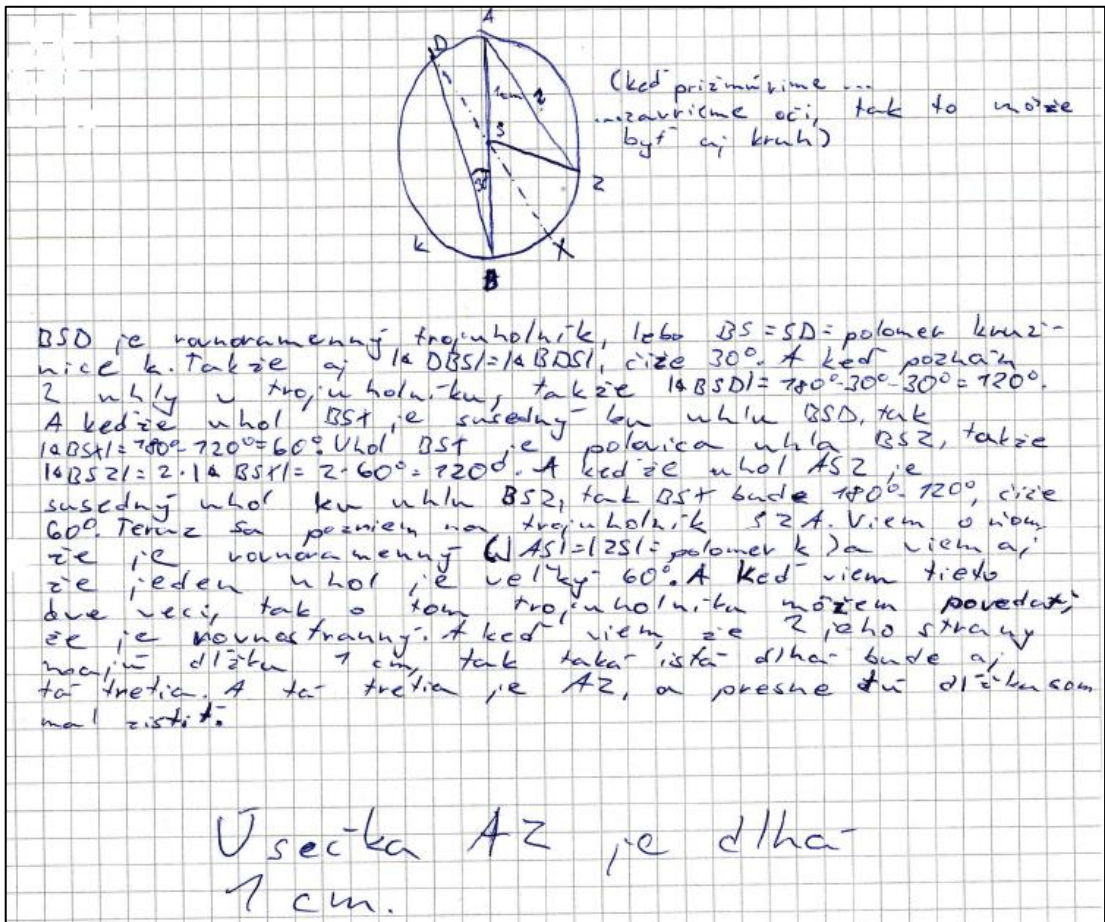 A
D
1cm
?
S
30
Z
k
X
B
(keď prižmúrime ...
...zavrieme oči, tak to môže
byť aj kruh)
BSD je rovnoramenný trojuholník, lebo BS = SD = polomer kruži-
nice k. Takže aj |∢ DBS| = |∢ BDS|, čiže 30°. A keď poznám
2 uhly v trojuholníku, takže |∢ BSD| = 180°-30°-30° = 120°.
A keďže uhol BSX je susedný ku uhlu BSD, tak
|∢BSX| = 180°-120° = 60°. Uhol BSX je polovica uhla BSZ, takže
|∢BSZ| = 2·|∢ BSX| = 2·60° = 120°. A keďže uhol ASZ je
susedný uhol ku uhlu BSZ, tak BSX bude 180°-120°, čiže
60°. Teraz sa pozriem na trojuholník SZA. Viem o ňom
že je rovnoramenný (|AS| = |ZS| = polomer k) a viem aj
že jeden uhol je veľký 60°. A keď viem tieto
dve veci, tak o tom trojuholníku môžem povedať,
že je rovnostranný. A keď viem, že 2 jeho strany
majú dĺžku 1 cm, tak taká istá dlhá bude aj
tá tretia. A tá tretia je AZ, a presne tú dĺžku som
mal zistiť.
Úsečka AZ je dlhá
1 cm.